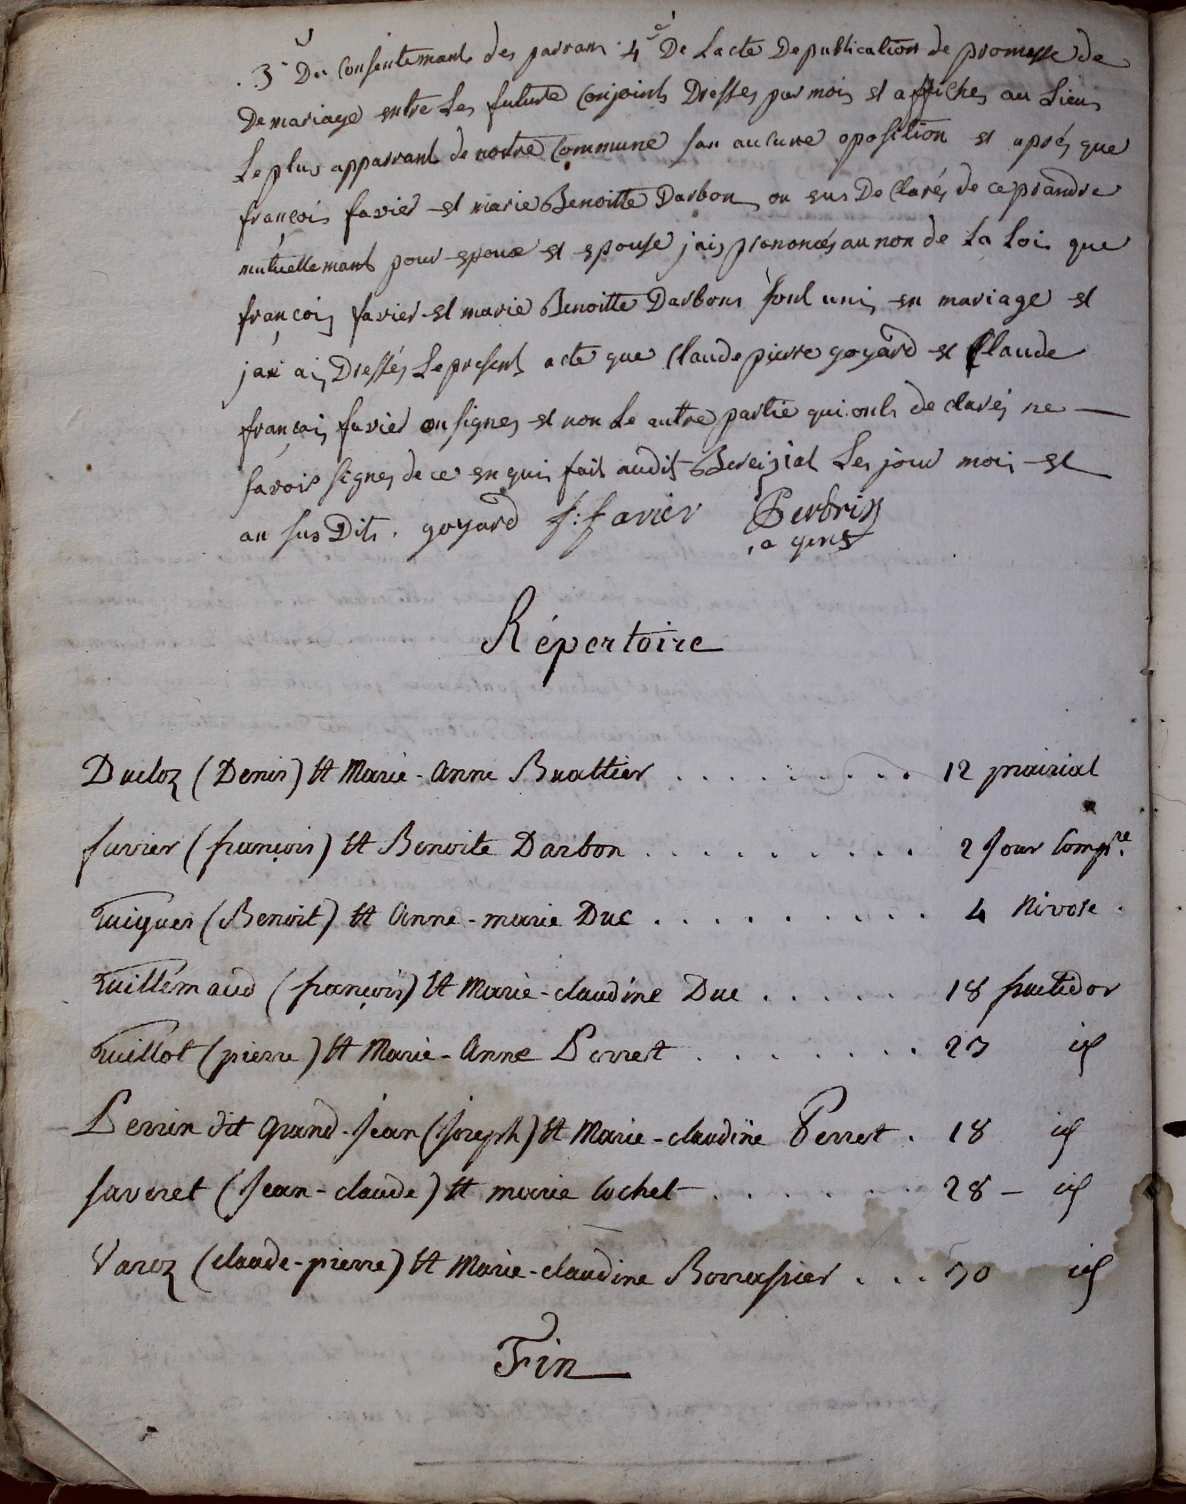 3° Du Consentemant des parrans . 4° De Lacte De publication de promesse de
De mariage entre Les futurts Conjoints Dresses par mois et affiches au Lieus
Le plus apparrant de notre Commune san aucune oposition et aprés que
françois favier et marie Benoitte Darbon on eus De Clarés de ce prandre
mutuellemant pour epoux et epouse jais prononcés au non de La Lois que
françois favier et marie Benoitte Darbons sont unis en mariage et
jax ais Dressés Le present acte que Claude pierre goyard et Claude
françois favier on signes et non Le autre partie qui onts de clarés ne —
savois signes de ce en quis fait audit Bereiziat Les jour mois et
an sus Dits . goyard f: favier Perbrix
, a gent
Répertoire
Ducloz (Denis) et Marie - Anne Buattier . . . . . . . . . 12 prairial
favier (françois) et Benoite Darbon . . . . . . . . . 2 Jour Comp.re
Guigues (Benoit) et Anne - marie Duc . . . . . . . . . 4 Nivose .
Guillemaud (françois) et Marie - claudine Duc . . . . . 18 fructidor
Guillot (pierre) et Marie - Anne Perret . . . . . . . . 23 id
Perrin dit Grand - Jean (Joseph) et Marie - claudine Perret . 18 id
Saveret (Jean - claude) et marie Cochet . . . . . . . 28 — id
Varoz (claude - pierre) et Marie - claudine Borrassier . . . 30 id
Fin